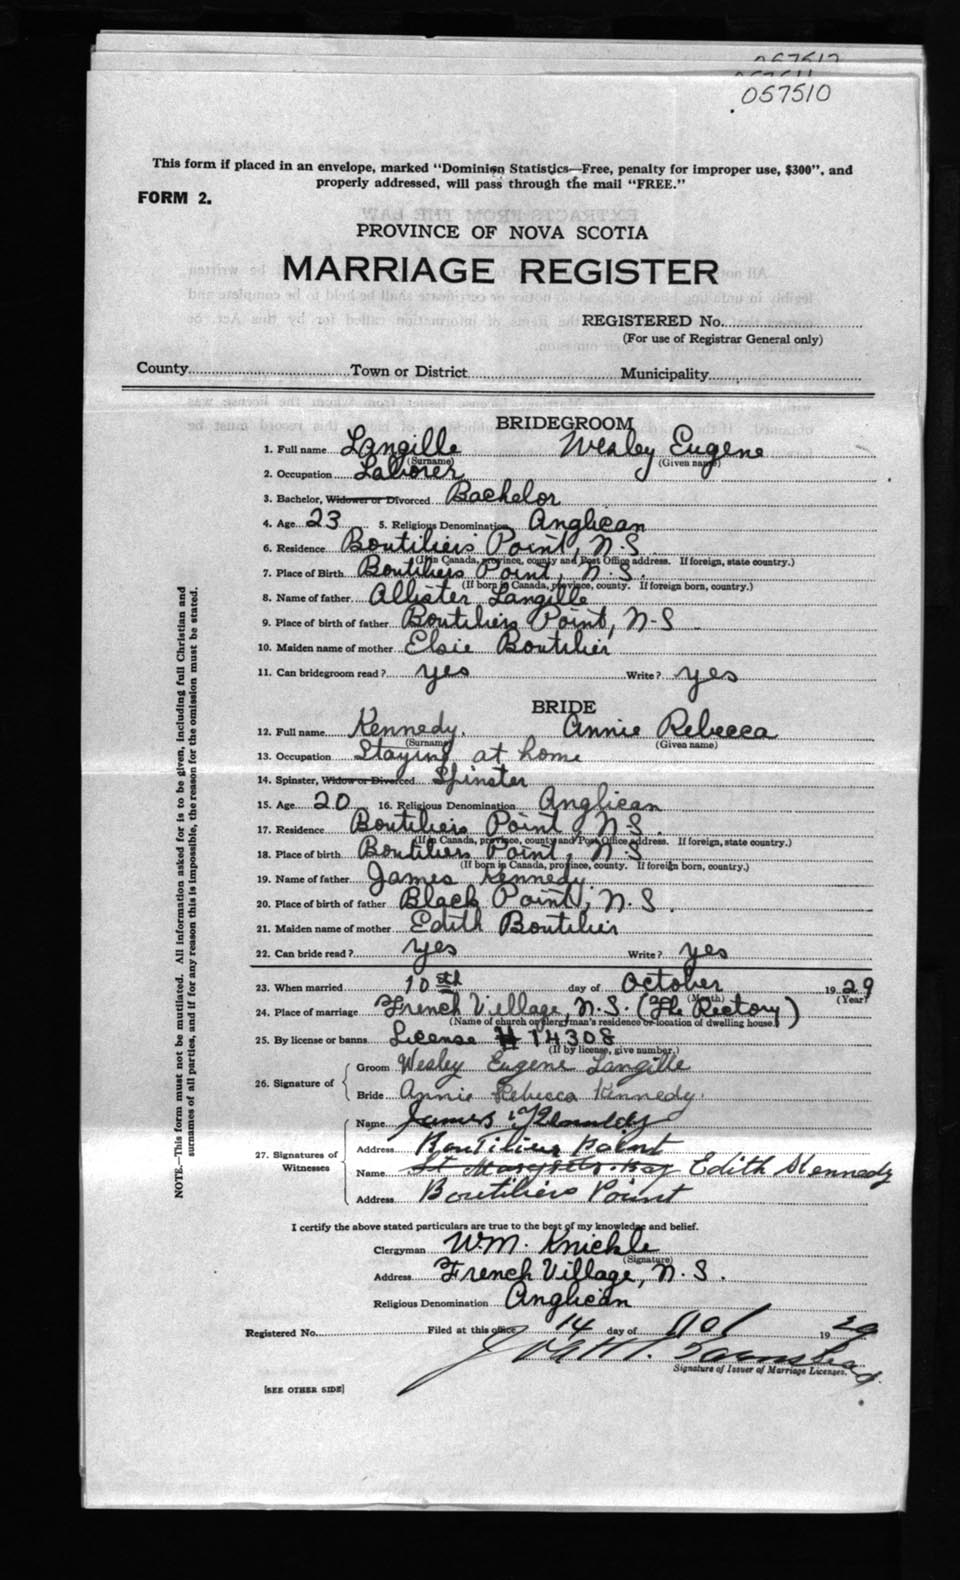 057512
057511
057510
This form if placed in an envelope, marked "Dominion Statistics—Free, penalty for improper use, $300", and
properly addressed, will pass through the mail "FREE."
FORM 2.
PROVINCE OF NOVA SCOTIA
MARRIAGE REGISTER
REGISTERED No.
(For use of Registrar General only)
County Town or District Municipality
BRIDEGROOM
1. Full name Langille Wesley Eugene
(Surname) (Given name)
2. Occupation Laborer
3. Bachelor, Widower or Divorced Bachelor
4. Age 23 5. Religious Denomination Anglican
6. Residence Boutiliers Point, N.S.
(If in Canada, province, county and Post Office address. If foreign, state country.)
7. Place of Birth Boutiliers Point, N.S.
(If born in Canada, province, county. If foreign born, country.)
8. Name of father Allister Langille
9. Place of birth of father Boutiliers Point, N-S
10. Maiden name of mother Elsie Boutilier
11. Can bridegroom read? yes Write? yes
BRIDE
12. Full name Kennedy, Annie Rebecca
(Surname) (Given name)
13. Occupation Staying at home
14. Spinster, Widow or Divorced Spinster
15. Age 20 16. Religious Denomination Anglican
17. Residence Boutiliers Point, N.S.
(If in Canada, province, county and Post Office address. If foreign, state country.)
18. Place of birth Boutiliers Point, N.S
(If born in Canada, province, county. If foreign born, country.)
19. Name of father James Kennedy.
20. Place of birth of father Black Point, N.S.
21. Maiden name of mother Edith Boutilier
22. Can bride read? yes Write? yes
23. When married 10th day of October 1929
(Month) (Year)
24. Place of marriage French Village, N.S. (The Rectory)
(Name of church or clergyman's residence or location of dwelling house.)
25. By license or banns License # 14308
(If by license, give number.)
26. Signature of
Groom Wesley Eugene Langille
Bride Annie Rebecca Kennedy.
27. Signatures of Witnesses
Name James
Address Boutiliers Point
Name St Margrets Bay Edith Kennedy
Address Boutiliers Point
I certify the above stated particulars are true to the best of my knowledge and belief.
Clergyman Wm. Knickle
(Signature)
Address French Village, N.S.
Religious Denomination Anglican
Registered No. Filed at this office 14 day of 1929
Signature of Issuer of Marriage Licenses.
[SEE OTHER SIDE]
NOTE.—This form must not be mutilated. All information asked for is to be given, including full Christian and
surnames of all parties, and if for any reason this is impossible, the reason for the omission must be stated.